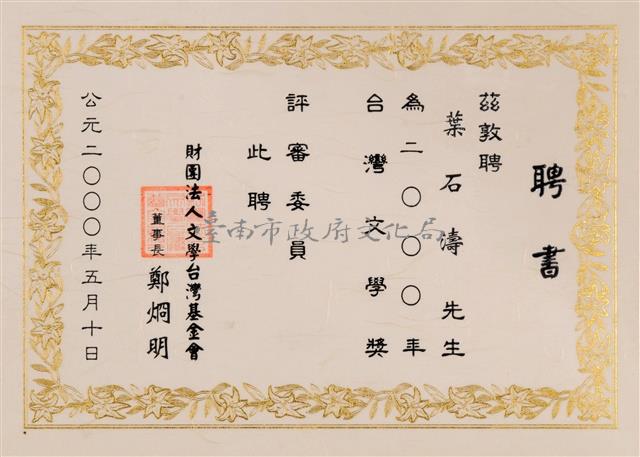 聘書
茲敦聘
葉石濤先生
為二〇〇〇年
台灣文學獎
評審委員
此聘
財團法人文學台灣基金會
董事長 鄭烱明
公元二〇〇〇年五月十日
臺南市政府文化局